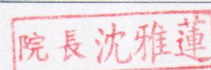 院長沈雅蓮